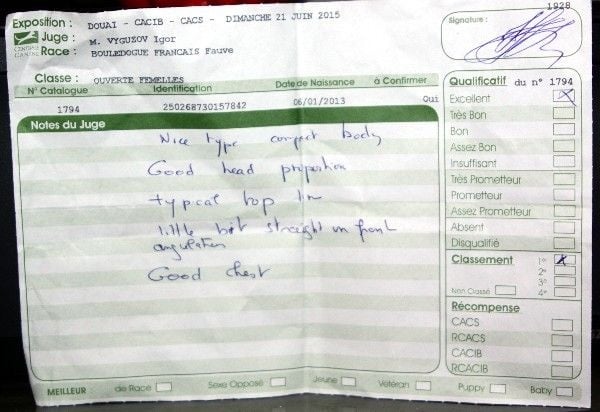 1928
Exposition : DOUAI - CACIB - CACS - DIMANCHE 21 JUIN 2015
Signature :
Juge : M. VYGUZOV Igor
CENTRALE CANINE
Race : BOULEDOGUE FRANCAIS Fauve
Classe : OUVERTE FEMELLES
N° Catalogue Identification Date de Naissance à Confirmer
1794 250268730157842 06/01/2013 Oui
Notes du Juge
Nice type compact body
Good head proportion
typical top line
little bit straight in front
angulation
Good chest
Qualificatif du n° 1794
Excellent X
Très Bon
Bon
Assez Bon
Insuffisant
Très Prometteur
Prometteur
Assez Prometteur
Absent
Disqualifié
Classement 1° X
2°
3°
Non Classé 4°
Récompense
CACS
RCACS
CACIB
RCACIB
MEILLEUR : de Race Sexe Opposé Jeune Vétéran Puppy Baby